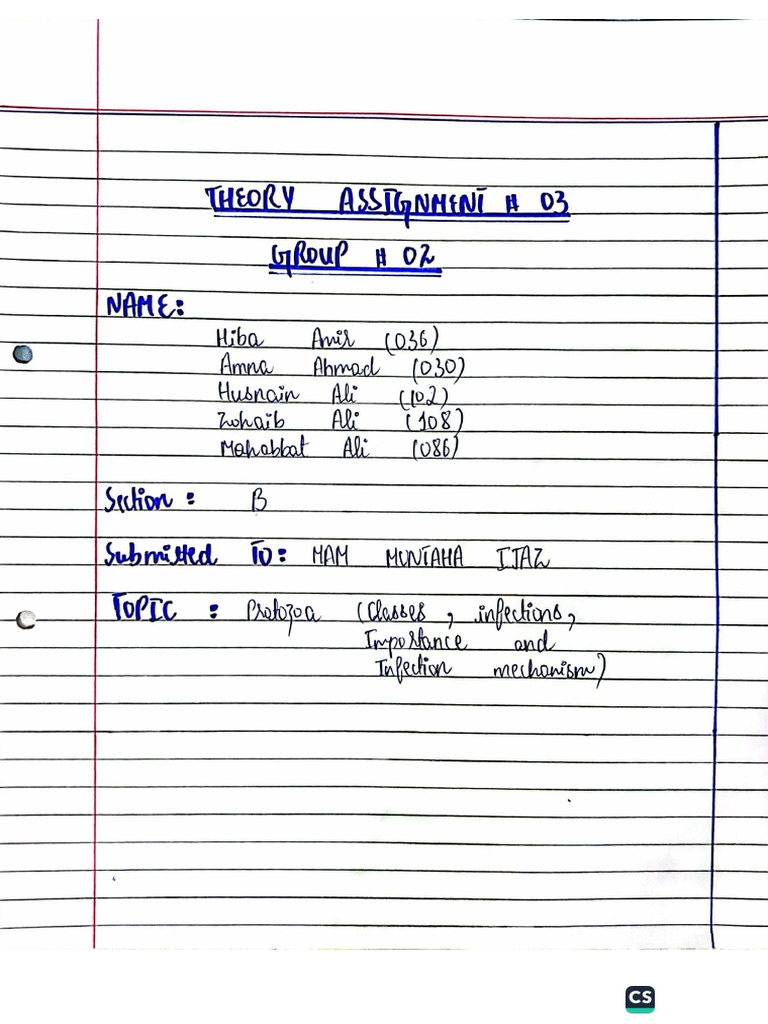 THEORY ASSIGNMENT # 03
GROUP # 02
NAME:
Hiba Amir (036)
Amna Ahmad (030)
Husnain Ali (102)
Zohaib Ali (108)
Mahabbat Ali (086)
Section: B
Submitted To: MAM MUNTAHA IJAZ
TOPIC: Protozoa (Classes, infections,
Importance and
Infection mechanism)
CS